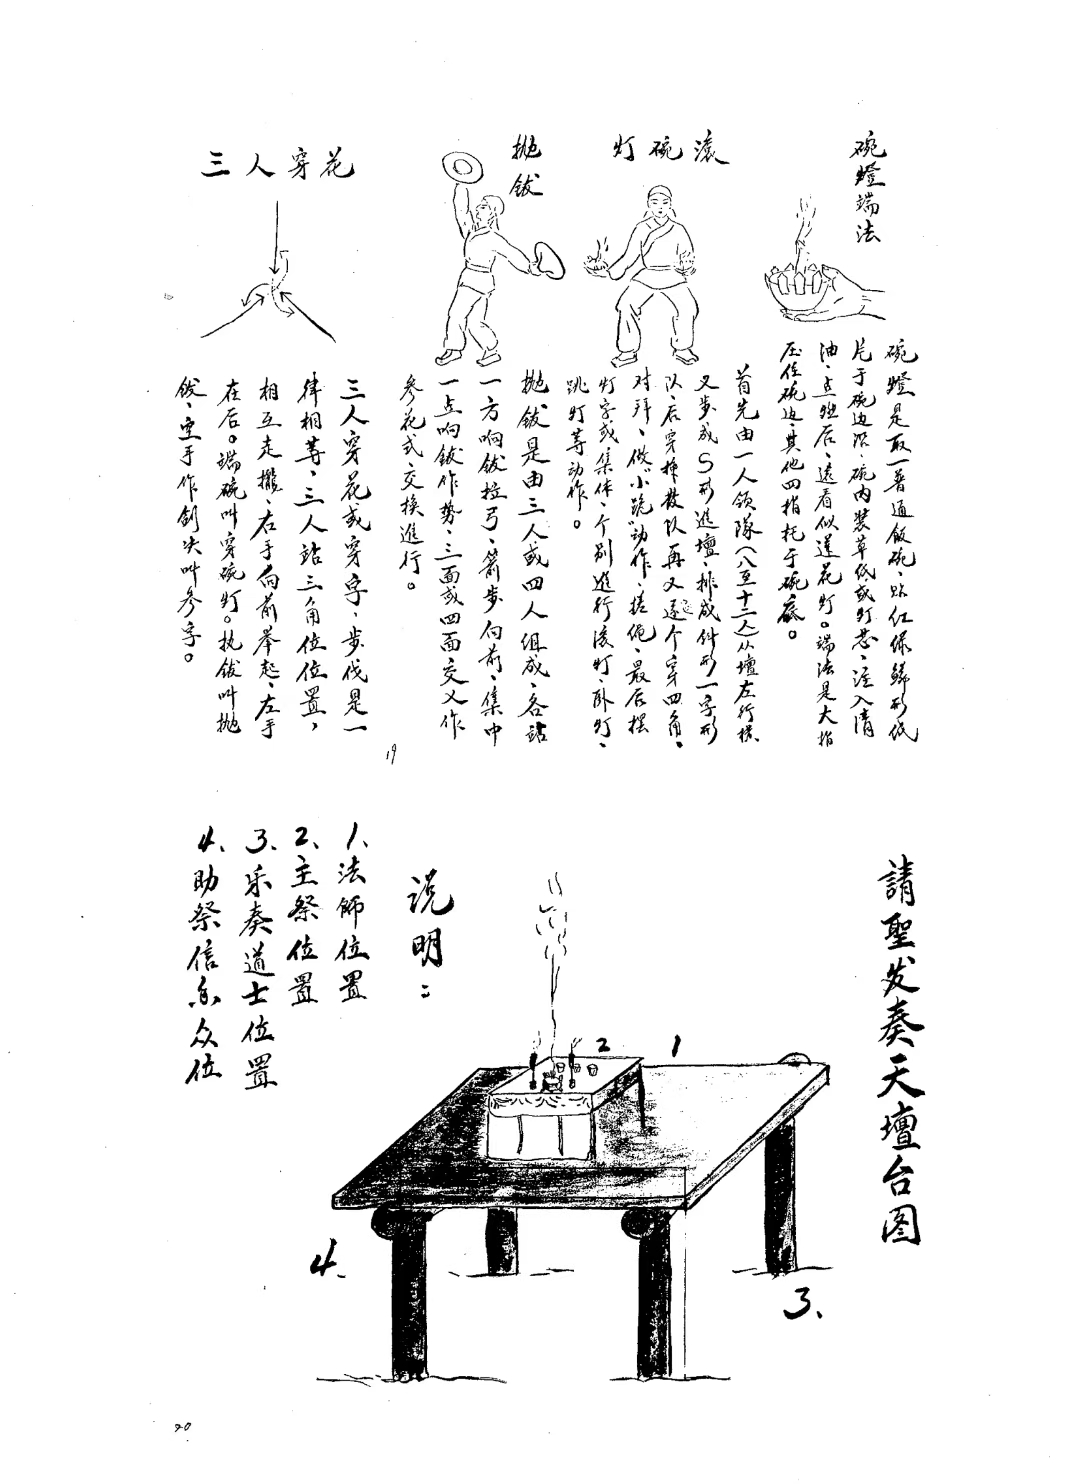 碗燈端法
滚碗灯
抛鈸
三人穿花
碗燈是取一普通飯碗、貼红绿歸形纸
片于碗边沿、碗内装草纸或灯芯、注入清
油、点燃后、远看似莲花灯。端法是大指
压住碗边、其他四指托于碗底。
首先由一人领隊(八至十二人)从壇左行横
叉步成S形進壇、排成斜形一字形
队、后穿梭散队再又逐个穿四角、
对拜、做"小跪"动作、搓绳、最后摆
灯字或集体、个别進行滚灯、卧灯、
跳灯等动作。
抛鈸是由三人或四人组成、各站
一方响鈸拉弓、箭步向前、集中
一点响鈸作势、三面或四面交叉作
参花式交换進行。
三人穿花或穿字、步伐是一
律相等、三人站三角位位置,
相互走攏、右手向前举起、左手
在后。端碗叫穿碗灯。执鈸叫抛
鈸、空手作剑决叫参字。
19
請聖发奏天壇台图
说明:
1、法師位置
2、主祭位置
3、乐奏道士位置
4、助祭信众位
1
2
3、
4、
20